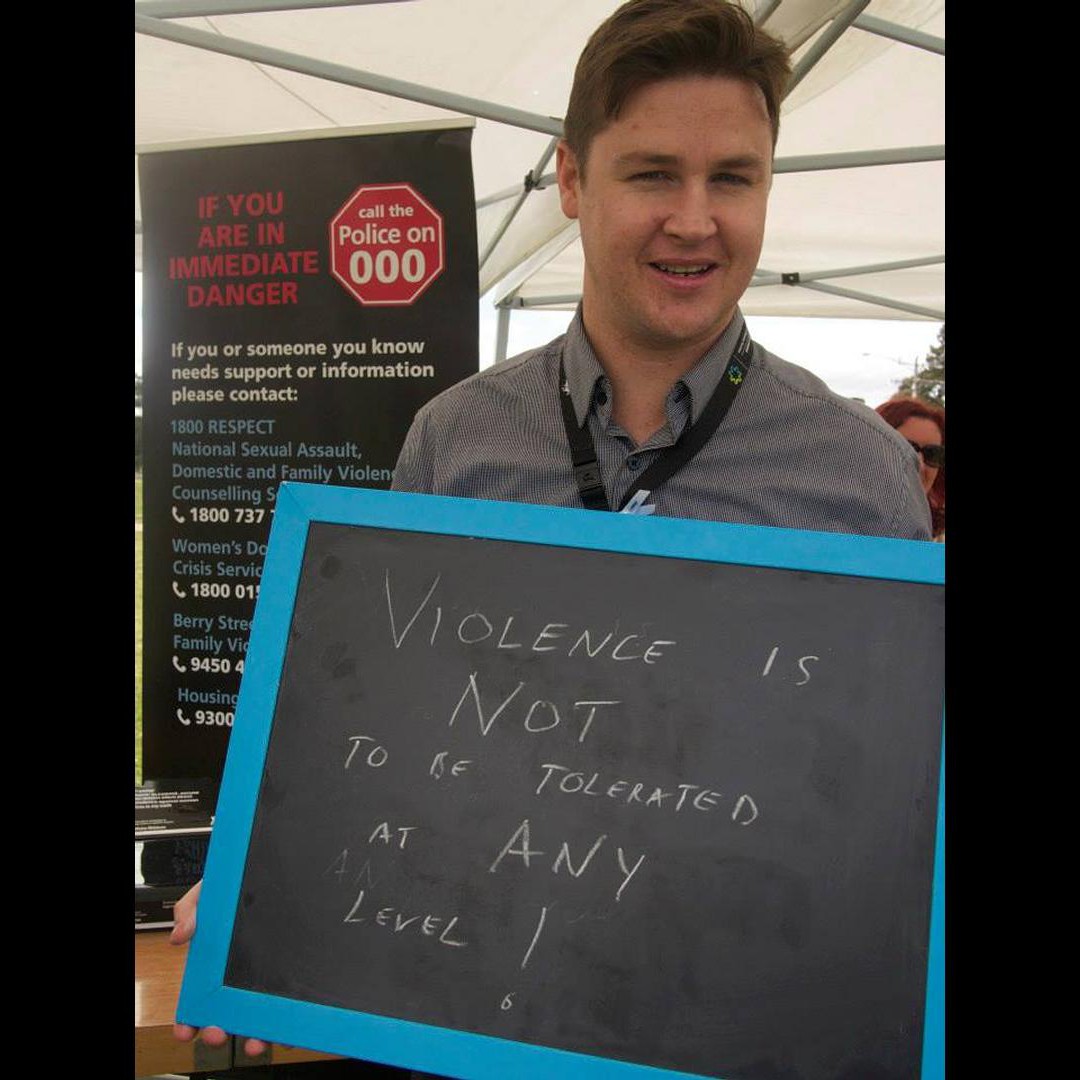 IF YOU
ARE IN
IMMEDIATE
DANGER
call the
Police on
000
If you or someone you know
needs support or information
please contact:
1800 RESPECT
National Sexual Assault,
Domestic and Family
Counselling
1800 737
Women's
Crisis
1800
Berry
Family
9450
Housing
9300
VIOLENCE IS
NOT
TO BE TOLERATED
AT ANY
AN
LEVEL !